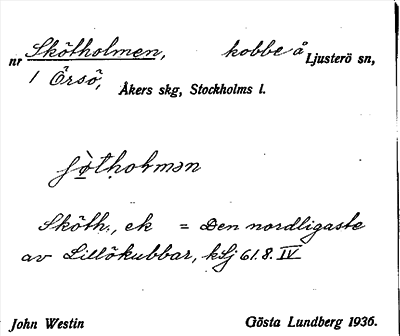 nr Skötholmen, kobbe å Ljusterö sn,
1 Örsö, Åkers skg, Stockholms l.
Sköth., ek = Den nordligaste
av Lillökubbar, kLj 61.8. IV
John Westin Gösta Lundberg 1936.